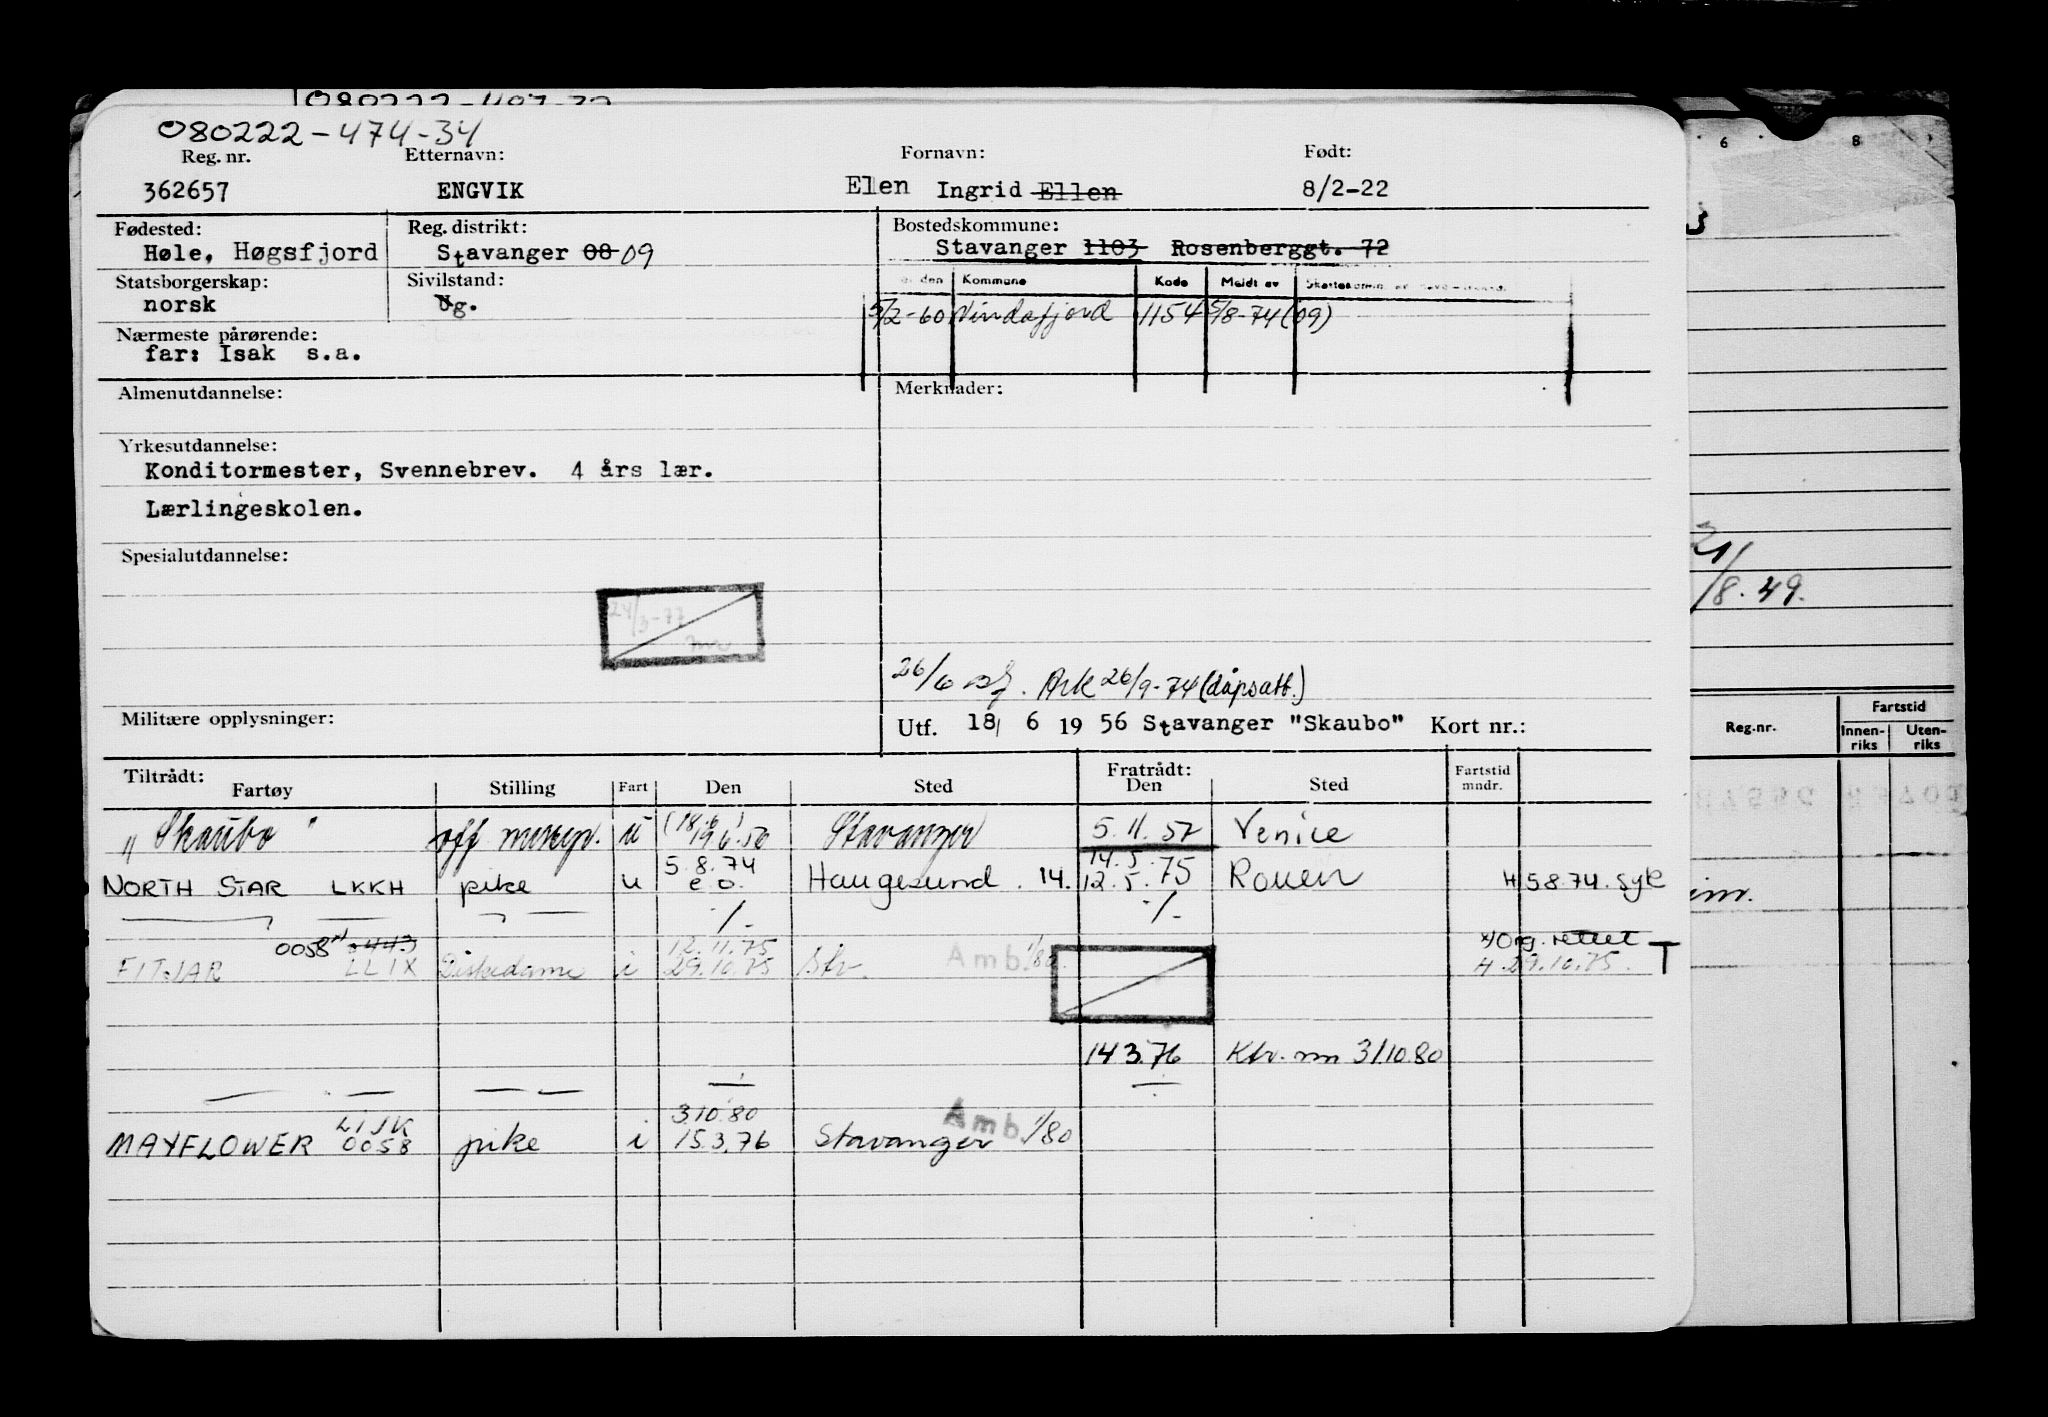 080222-474-34
Reg. nr. Etternavn: Fornavn: Født:
362657 ENGVIK Elen Ingrid Ellen 8/2-22
Fødested: Reg. distrikt: Bostedskommune:
Høle, Høgsfjord Stavanger 08 09 Stavanger 1103 Rosenberggt. 72
Statsborgerskap: Sivilstand: Kommune Kode Meldt av
norsk Ug. 5/2-60 Vindafjord 1154 5/8-74 (09)
Nærmeste pårørende:
far: Isak s.a.
Almenutdannelse: Merknader:
Yrkesutdannelse:
Konditormester, Svennebrev. 4 års lær.
Lærlingeskolen.
Spesialutdannelse:
24/3-77
26/6 Ark 26/9-74 (dåpsatt.)
Militære opplysninger: Utf. 18/ 6 19 56 Stavanger "Skaubo" Kort nr.:
Tiltrådt: Fratrådt: Fartstid
Fartøy Stilling Fart Den Sted Den Sted mndr.
(18/6)
"Skaubo" u 19.6.56 Stavanger 5.11.57 Venice
5.8.74 14.5.
NORTH STAR LKKH pike u e.o. Haugesund. 14. 12.5.75 Rouen H 5.8.74. syk
-/- -/-
0058 0443 12.11.75 Amb. 1/80 x) Org. rettet T
FITJAR LLIX Diskedame i 29.10.75 Stv. H 29.10.75.
14.3.76 Ktr. nm 3/10.80
LIJK 3.10.80 Amb. 1/80
MAYFLOWER 0058 pike i 15.3.76 Stavanger
6 8
21/8.49.
Reg.nr. Fartstid
Innen-riks Uten-riks